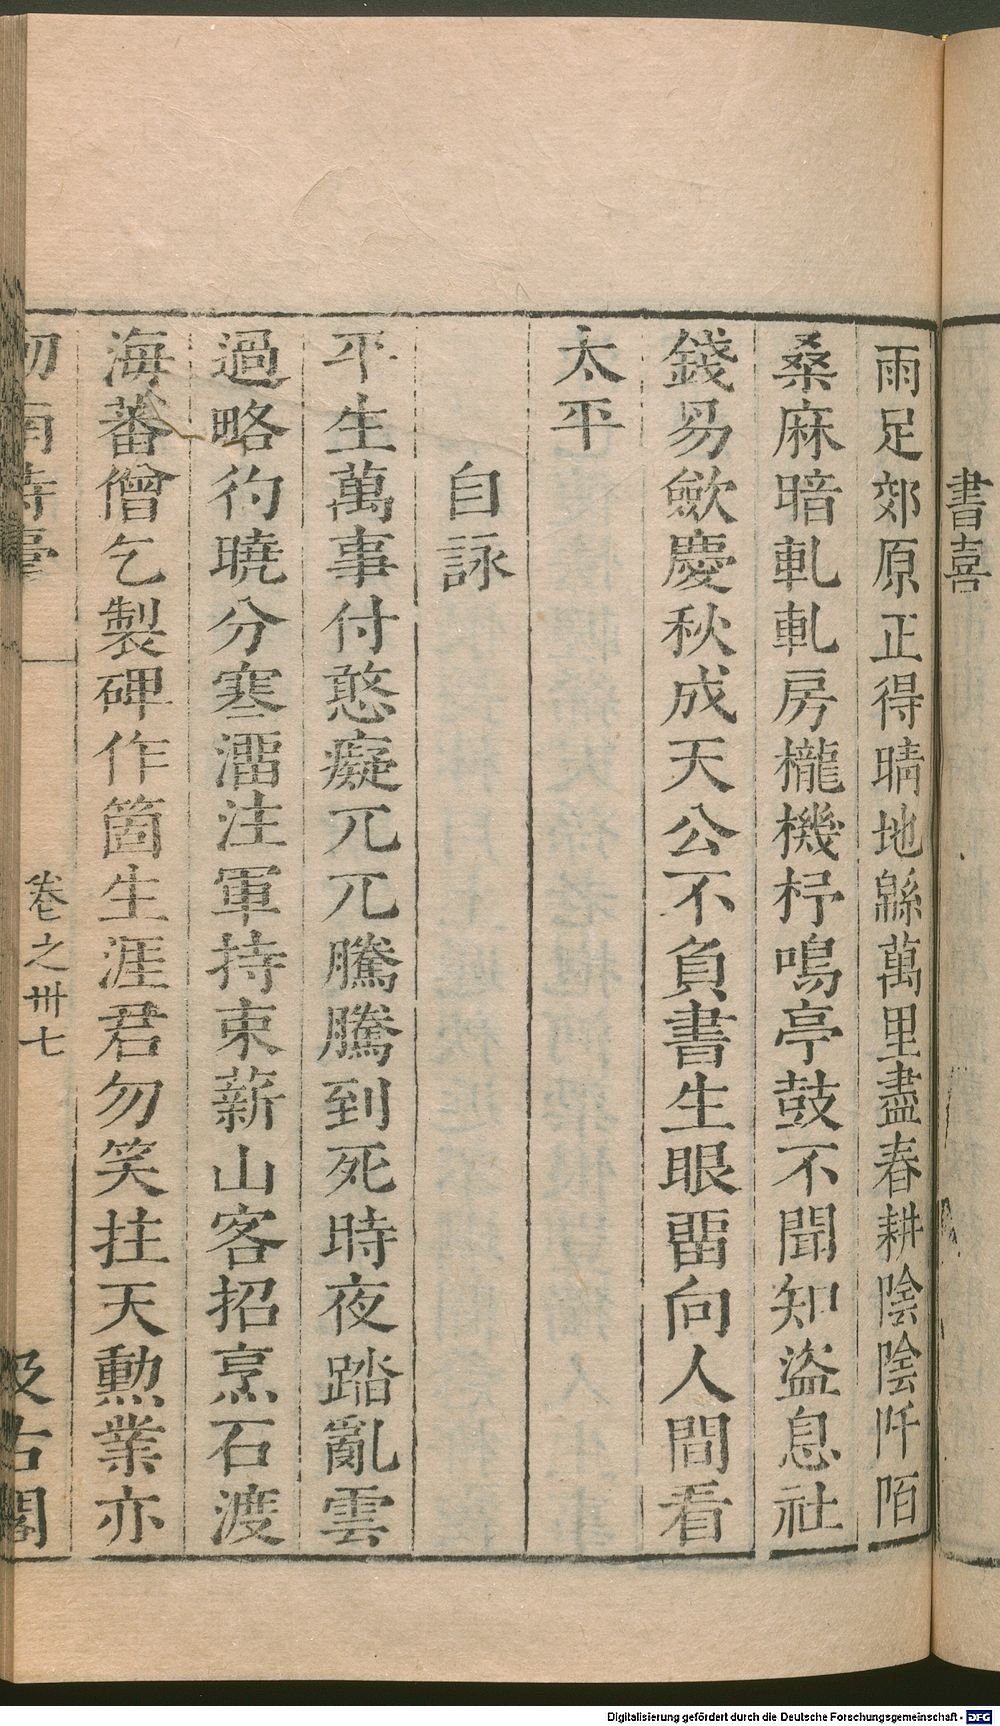 書喜
雨足郊原正得晴地緜萬里盡春耕陰陰阡陌
桑麻暗軋軋房櫳機杼鳴亭鼓不聞知盜息社
錢易歛慶秋成天公不負書生眼畱向人間看
太平
自詠
平生萬事付憨癡兀兀騰騰到死時夜踏亂雲
過略彴曉分寒溜注軍持束薪山客招烹石渡
海蕃僧乞製碑作箇生涯君勿笑拄天勲業亦
劒南詩藁
卷之卅七
汲古閣
Digitalisierung gefördert durch die Deutsche Forschungsgemeinschaft - DFG